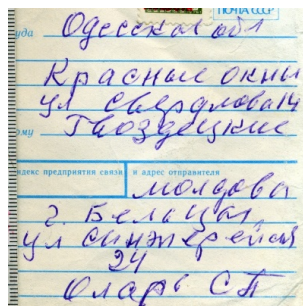 ПОЧТА СССР
уда Одесская обл
Красные окны
ул Свердлова 14
ому Гвоздецкие
ндекс предприятия связи и адрес отправителя
молдова
г. Бельцы
ул
24
Оларь С П